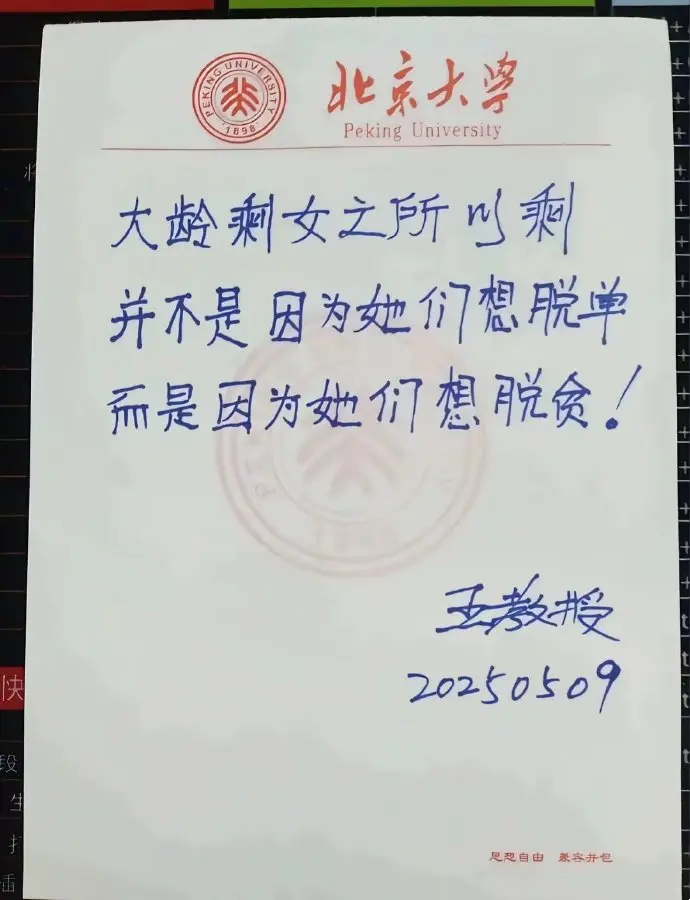 PEKING UNIVERSITY
1898
北京大学
Peking University
大龄剩女之所以剩
并不是因为她们想脱单
而是因为她们想脱贫!
王教授
20250509
思想自由 兼容并包
快
段
生
打
插